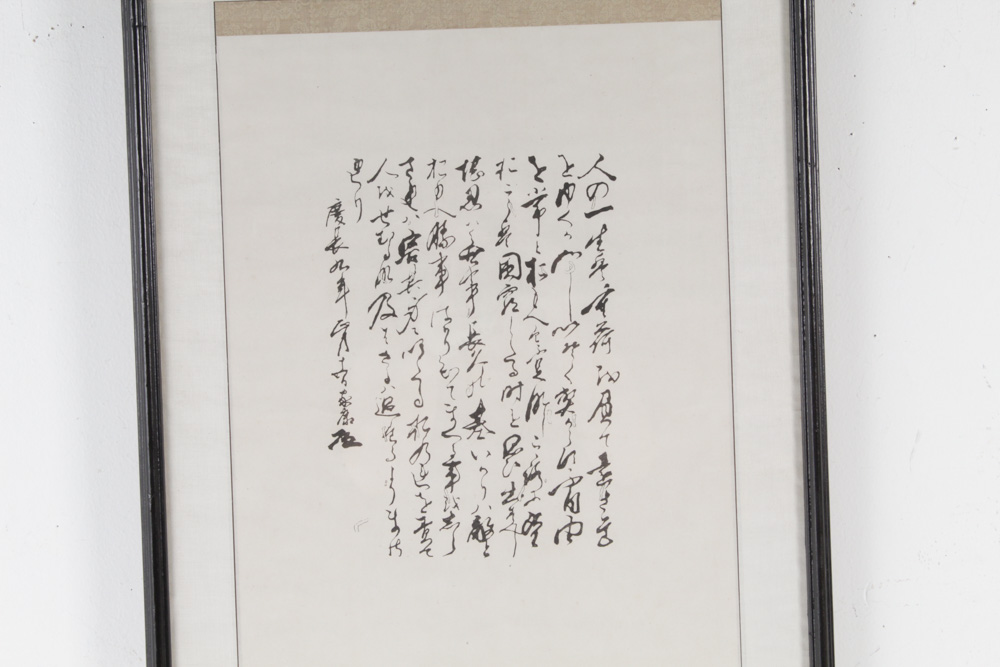 人の一生は重荷を負て遠き道
をゆくか如しいそくへからす不自由
を常とおもへは不足なしこゝろに望
おこらは困窮したる時を思ひ出すへし
堪忍は無事長久の基いかりハ敵と
おもへ勝事はかり知てまくる事をしら
されハ害其身にいたるおのれを責て
人をせむるな及はさるハ過たるよりまさ
れり
慶長九年正月十五日家康